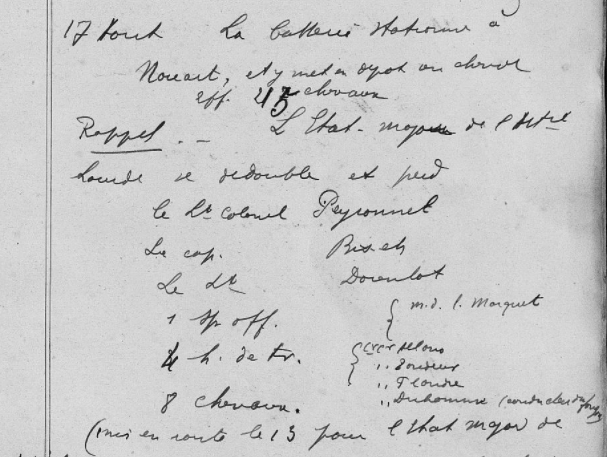 17 Aout La batterie stationne à
Nouart, et y met en depot un cheval
Eff. 45 chevaux
Rappel. — L'Etat-major de l'Artie
Lourde se dédouble et perd
le Lt Colonel Peyronnet
Le cap.
Le Lt
1 s/off. { m.d.l. Marquet
4 h. de tr.
" Flandre
8 chevaux. " Duhomme (conducteur du fourgon
(mis en route le 13 pour l'Etat major de